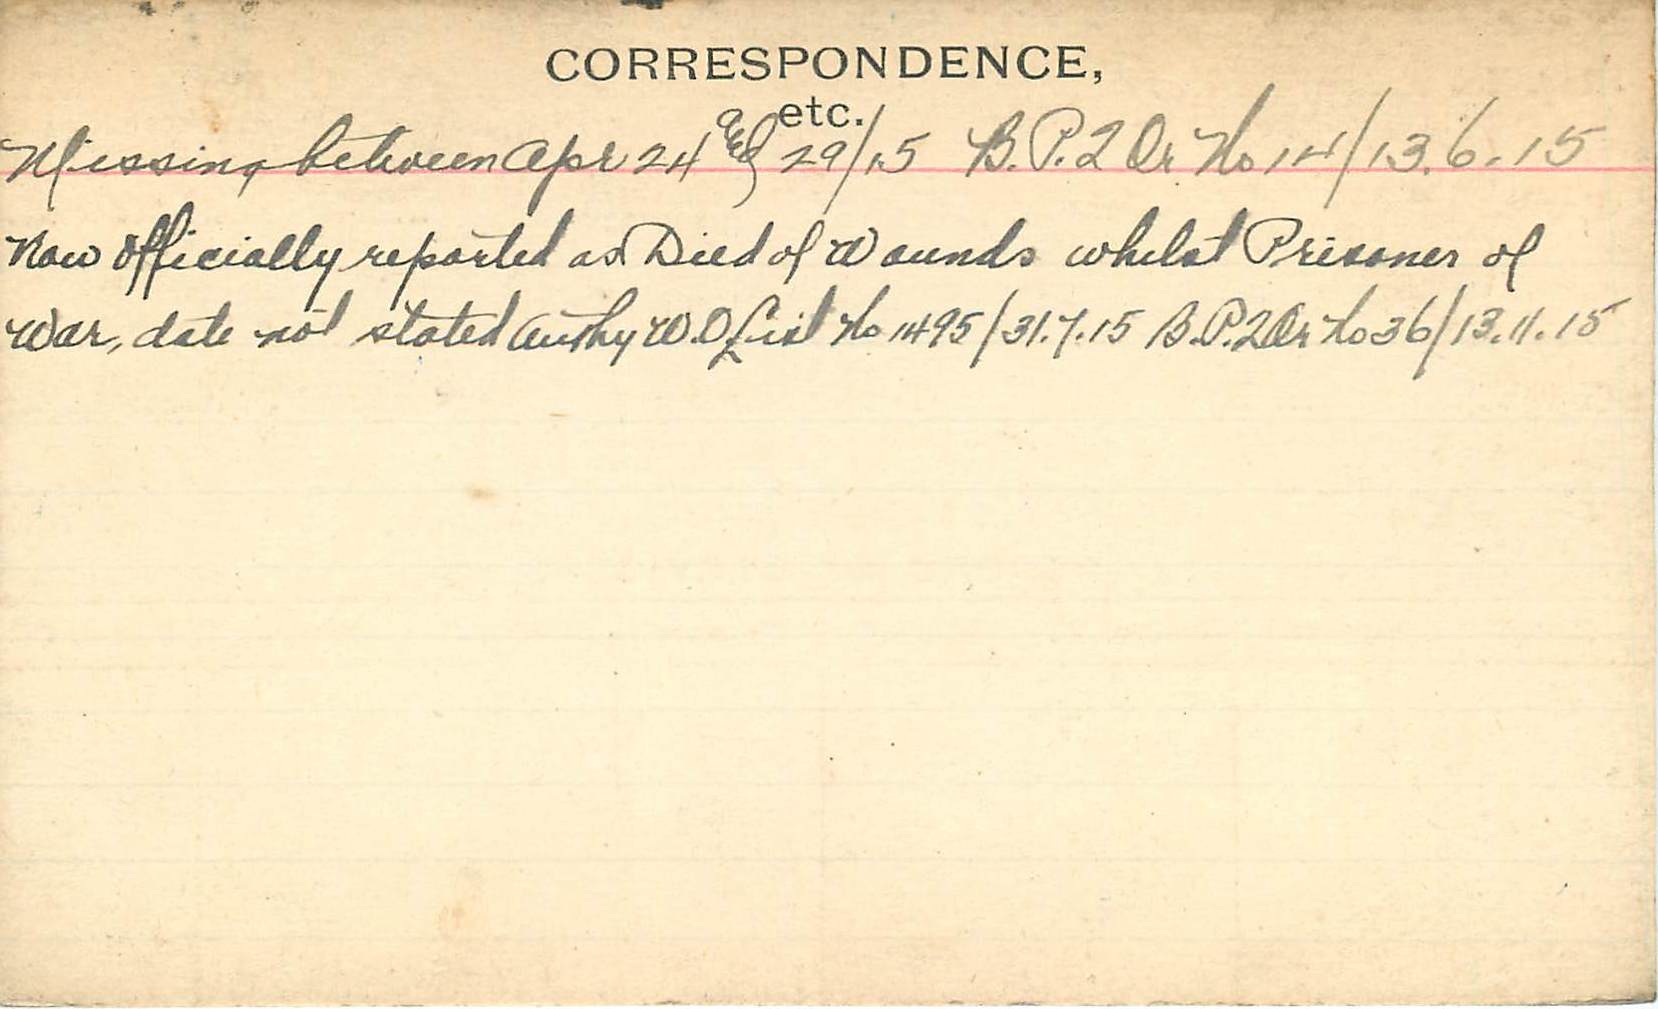 CORRESPONDENCE,
etc.
Missing between Apr 24 & 29/15 B.P.2 Or. No 14/13.6.15
Now officially reported as Died of Wounds whilst Prisoner of
War, date not stated Authy W.O List No 1495/31.7.15 B.P.2 Or No 36/13.11.15